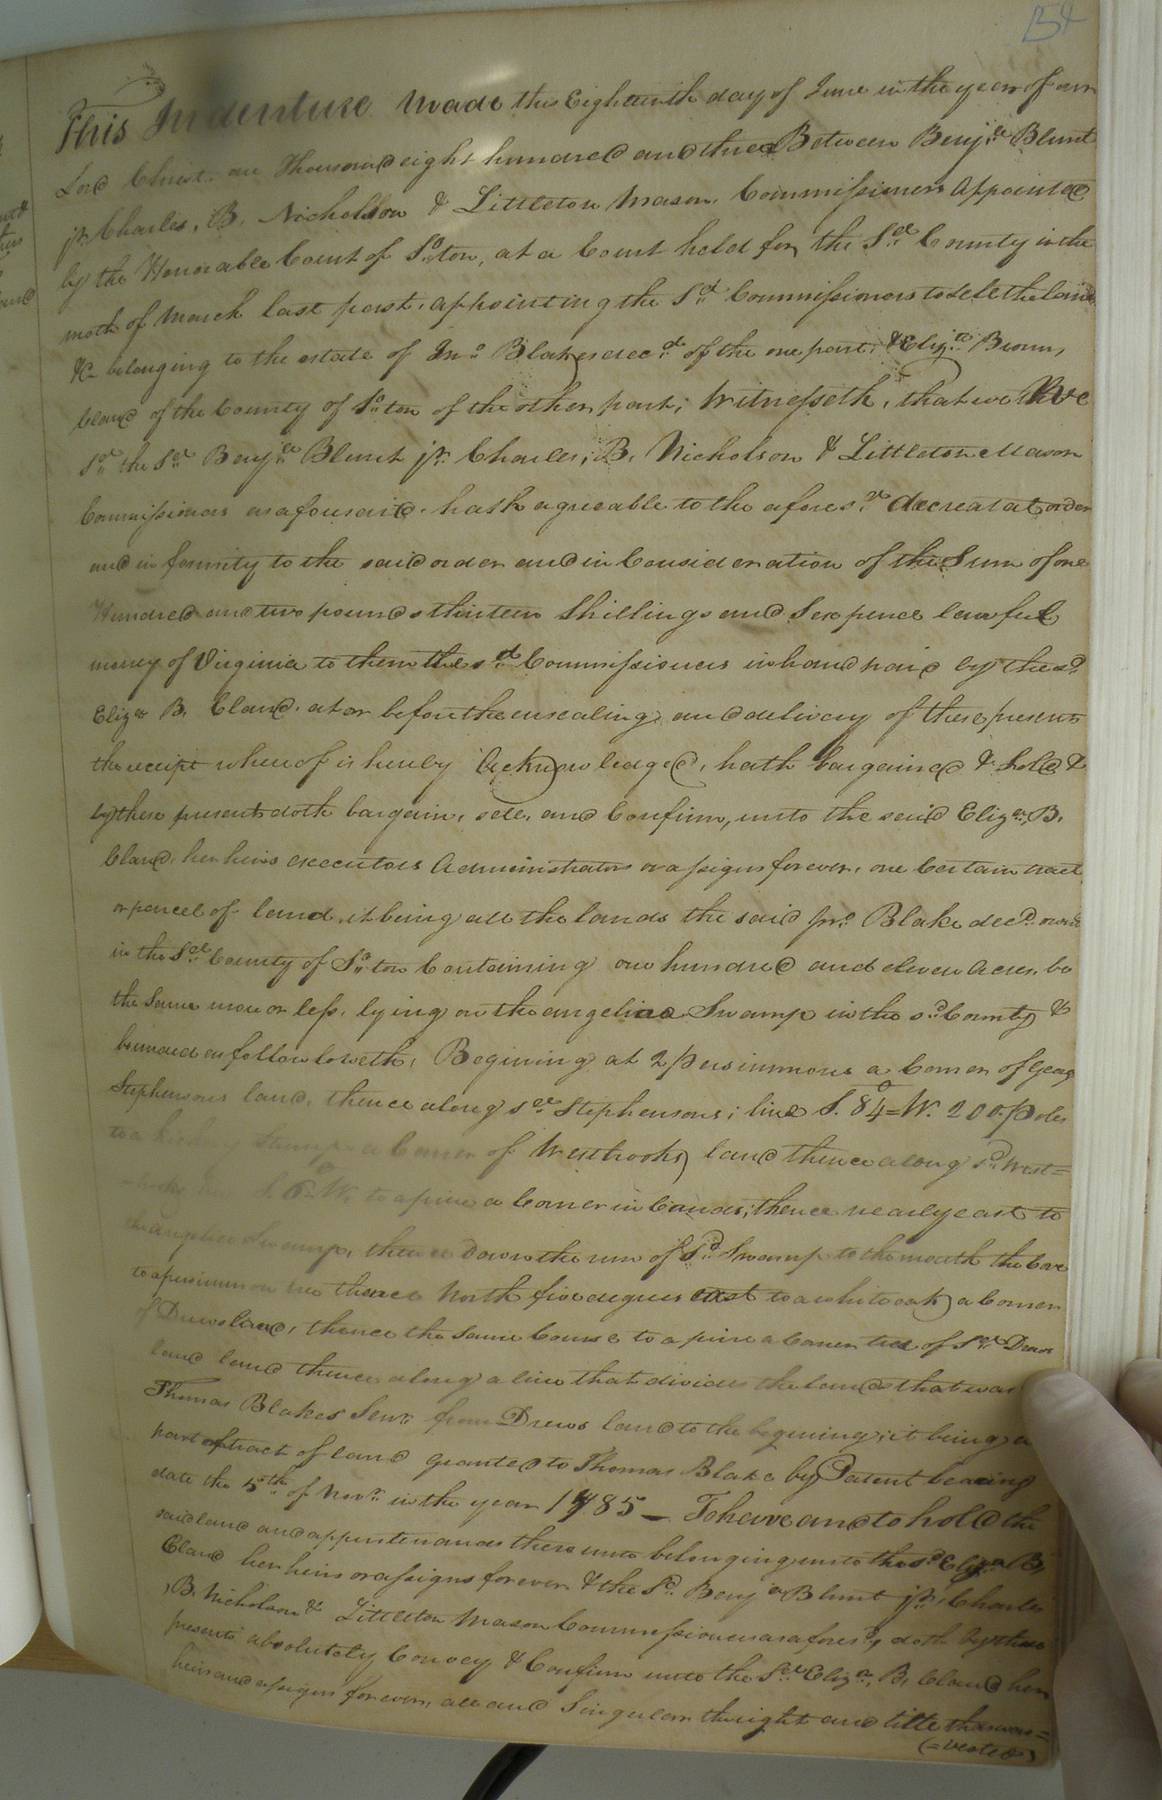 This Indenture made this Eighteenth day of June in the year of our
Lord Christ. one Thousand eight hundred and three Between Benj.a Blunt
jr. Charles, B. Nicholson & Littleton Mason. Commissioners Appointed
by the Honorable Court of So.ton, at a Court held for the Sd. County in the
moth of March last past. appointing the Sd. Commissioners to sell the land
&c belonging to the estate of Jno. Blake decd. of the one part; & Eliza. B
bland of the County of So.ton of the other part; Witnesseth, that we
Sd. the Sd. Benj.a Blunt jr. Charles, B. Nicholson & Littleton Mason
Commissioners as afousaid. hath agreeable to the afores.d decreatat order
and in formity to the said order and in Consideration of the Sum of one
Hundred and two pounds thirteen Shillings and Six pence lawful
money of Virginia to them the sd. Commissioners in hand paid by the sd.
Eliza B. Cland. at or before the ensealing and delivery of these presents
the receipt whereof is hereby Acknowledged, hath bargained & sold &
by these presents doth bargain, sell, and Confirm, unto the said Eliza. B.
Cland, her heirs executors Administrators or assigns forever, one Certain tract
or parcel of land, it being all the lands the said Jno. Blake decd. owned
in the Sd. County of So.ton Containing one hundred and eleven Acres be
the Same more or less, lying on the angelica Swamp in the sd. County &
bounded as followeth, Begining at 2 persimmons a Corner of Georg
Stephensons land, thence along sd. Stephensons; line S. 84 = W. 200. Poles
to a hickory Stump a Corner of Westbrooks land thence along sd. West=
S. 6 W. to a pine a Corner in thence nearly east to
Swamp, thence down the run of Sd. Swamp to the mouth the Cove
to a persimmon tree thence North five degrees east to a white oak a Corner
of Drews land, thence the Same Course to a pine a Corner tree of Sd. Drews
land land thence along a line that divides the lands that was
Thomas Blakes Senr. from Drews land to the begining; it being a
part of tract of land granted to Thomas Blake by Patent bearing
date the 5th of Novr. in the year 1785 — To have and to hold the
said land and appurtenances thereunto belonging unto the sd. Eliza B,
Cland her heirs or assigns forever & the Sd. Benj a Blunt jr. Charles
, B. Nicholson & Littleton Mason Commissioners as afores.d, doth by these
presents absolutely Convey & Confirm unto the Sd. Eliza, B, Cland her
heirs and assigns forever, all and Singular the right and title
(=vested)